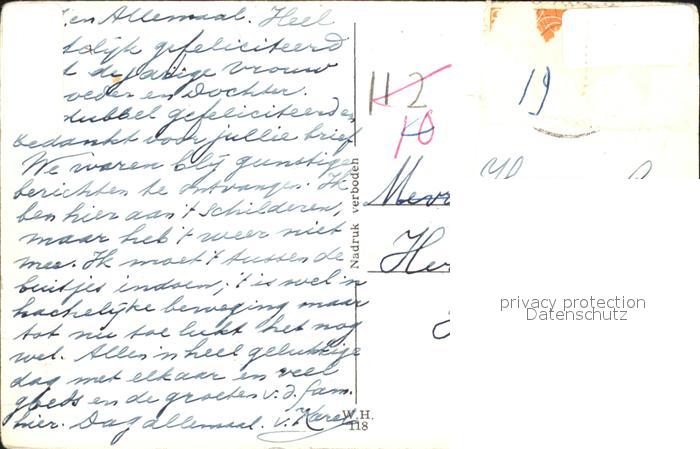 en Allemaal. Heel
telijk gefeliciteerd
t de jarige vrouw
oeder en Dochter.
dubbel gefeliciteerd en
bedankt voor jullie brief
We waren blij gunstige
berichten te ontvangen. Ik
ben hier aan 't schilderen,
maar heb 't weer niet
mee. Ik moet 't tussen de
buitjes indoen, 't is wel 'n
hachelijke beweging maar
tot nu toe lukt het nog
wel. Alles 'n heel gelukkige
dag met elkaar en veel
goeds en de groeten v. d. fam.
hier. Dag allemaal. v. Karel
Nadruk verboden
W.H.
118
112
10
19
Mevr
He
privacy protection
Datenschutz